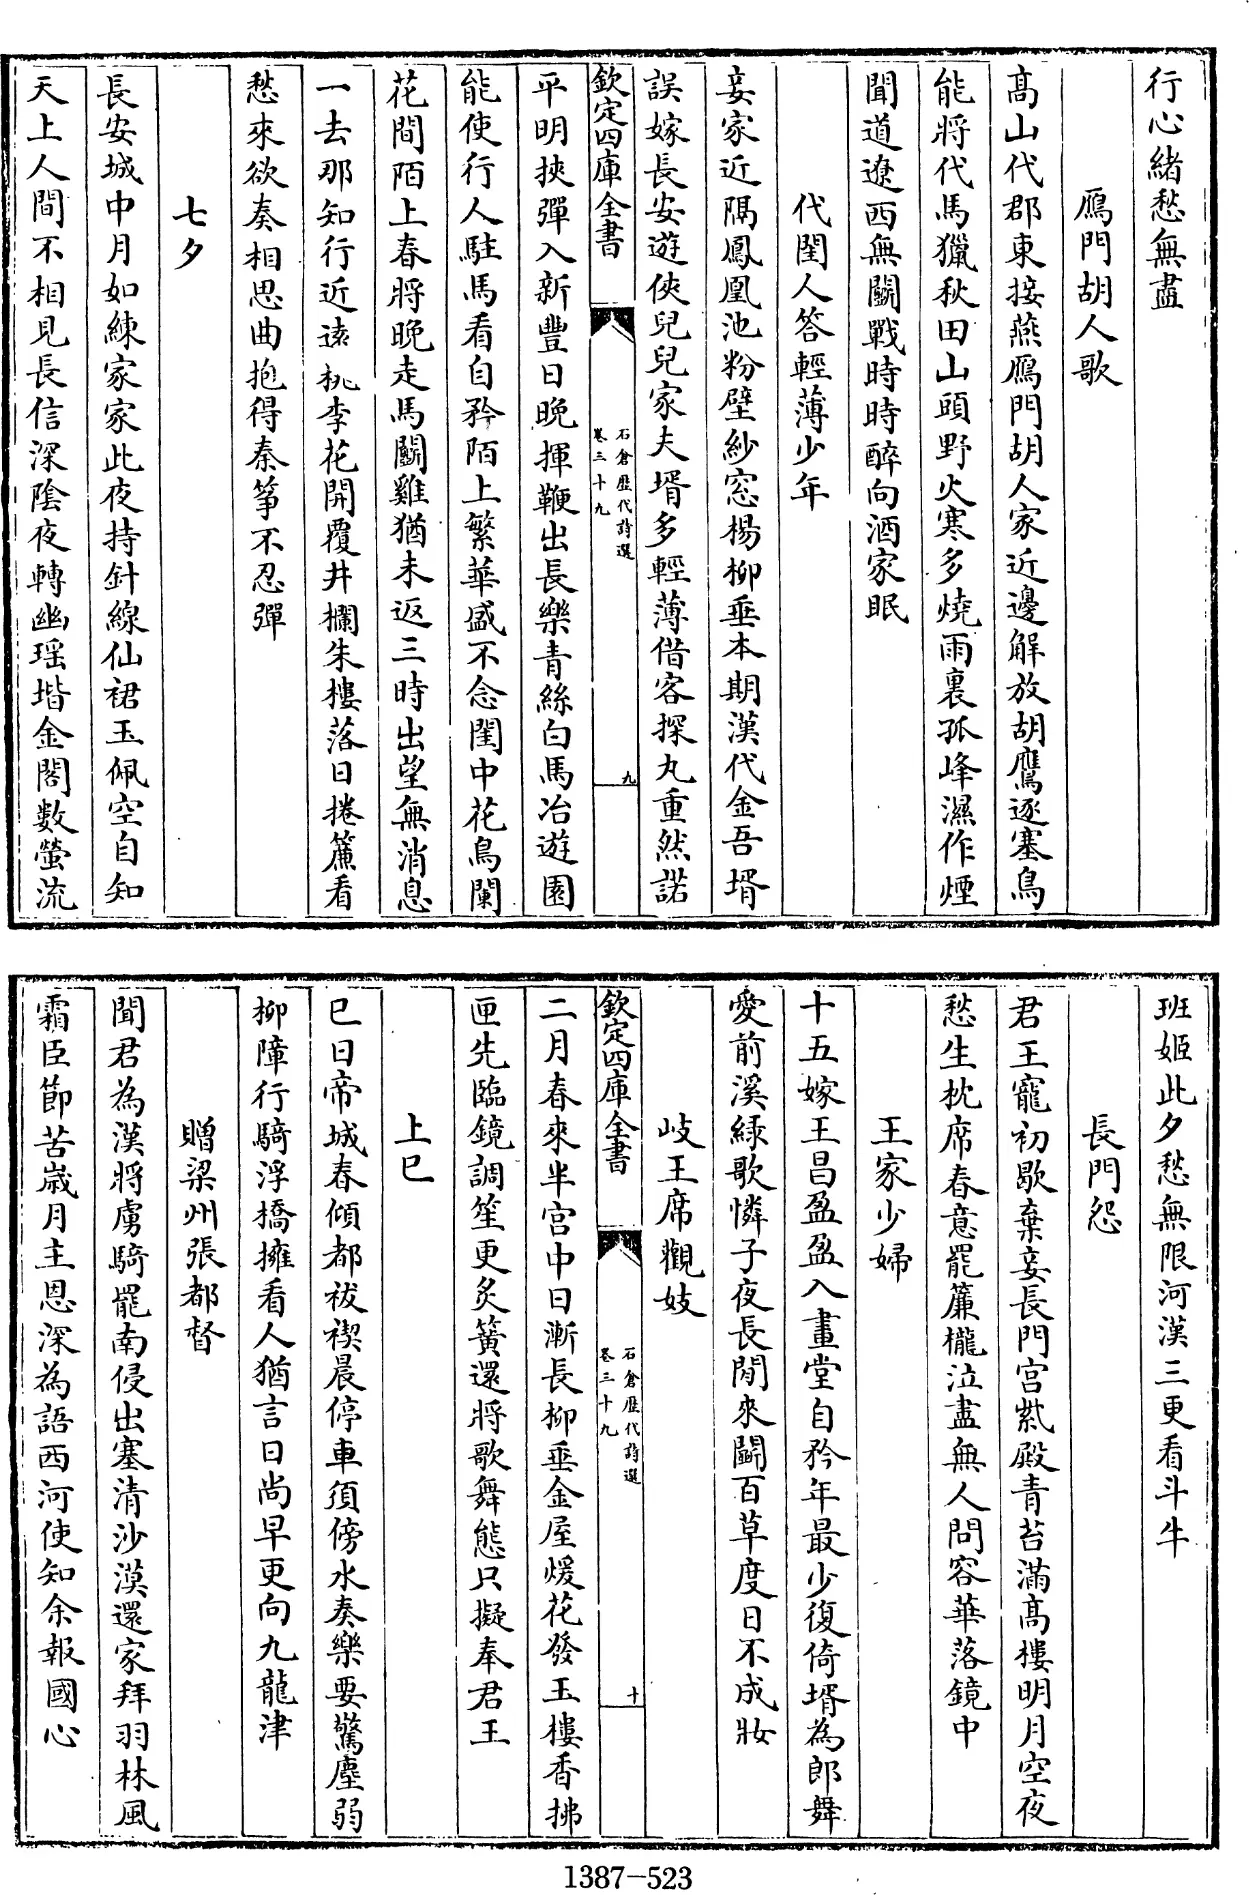 行心緒愁無盡
鴈門胡人歌
髙山代郡東接燕鴈門胡人家近邊解放胡鷹逐塞鳥
能將代馬獵秋田山頭野火寒多燒雨裏孤峰濕作煙
聞道遼西無鬬戰時時醉向酒家眠
代閨人答輕薄少年
妾家近隔鳳凰池粉壁紗窓楊柳垂本期漢代金吾壻
誤嫁長安遊俠兒兒家夫壻多輕薄借客探丸重然諾
欽定四庫全書
石倉歴代詩選
卷三十九
九
平明挾彈入新豐日晚揮鞭出長樂青絲白馬冶遊園
能使行人駐馬看自矜陌上繁華盛不念閨中花鳥闌
花間陌上春將晚走馬鬬雞猶未返三時出望無消息
一去那知行近逺桃李花開覆井欄朱樓落日捲簾看
愁來欲奏相思曲抱得秦箏不忍彈
七夕
長安城中月如練家家此夜持針線仙裙玉佩空自知
天上人間不相見長信深陰夜轉幽瑶堦金閣數螢流
班姬此夕愁無限河漢三更看斗牛
長門怨
君王寵初歇棄妾長門宫紫殿青苔滿髙樓明月空夜
愁生枕席春意罷簾櫳泣盡無人問容華落鏡中
王家少婦
十五嫁王昌盈盈入畫堂自矜年最少復倚壻為郎舞
愛前溪緑歌憐子夜長閒來鬬百草度日不成妝
岐王席觀妓
欽定四庫全書
石倉歴代詩選
卷三十九
十
二月春來半宫中日漸長柳垂金屋煖花發玉樓香拂
匣先臨鏡調笙更炙簧還將歌舞態只擬奉君王
上巳
巳日帝城春傾都祓禊晨停車須傍水奏樂要驚塵弱
柳障行騎浮橋擁看人猶言日尚早更向九龍津
贈梁州張都督
聞君為漢將虜騎罷南侵出塞清沙漠還家拜羽林風
霜臣節苦嵗月主恩深為語西河使知余報國心
1387-523